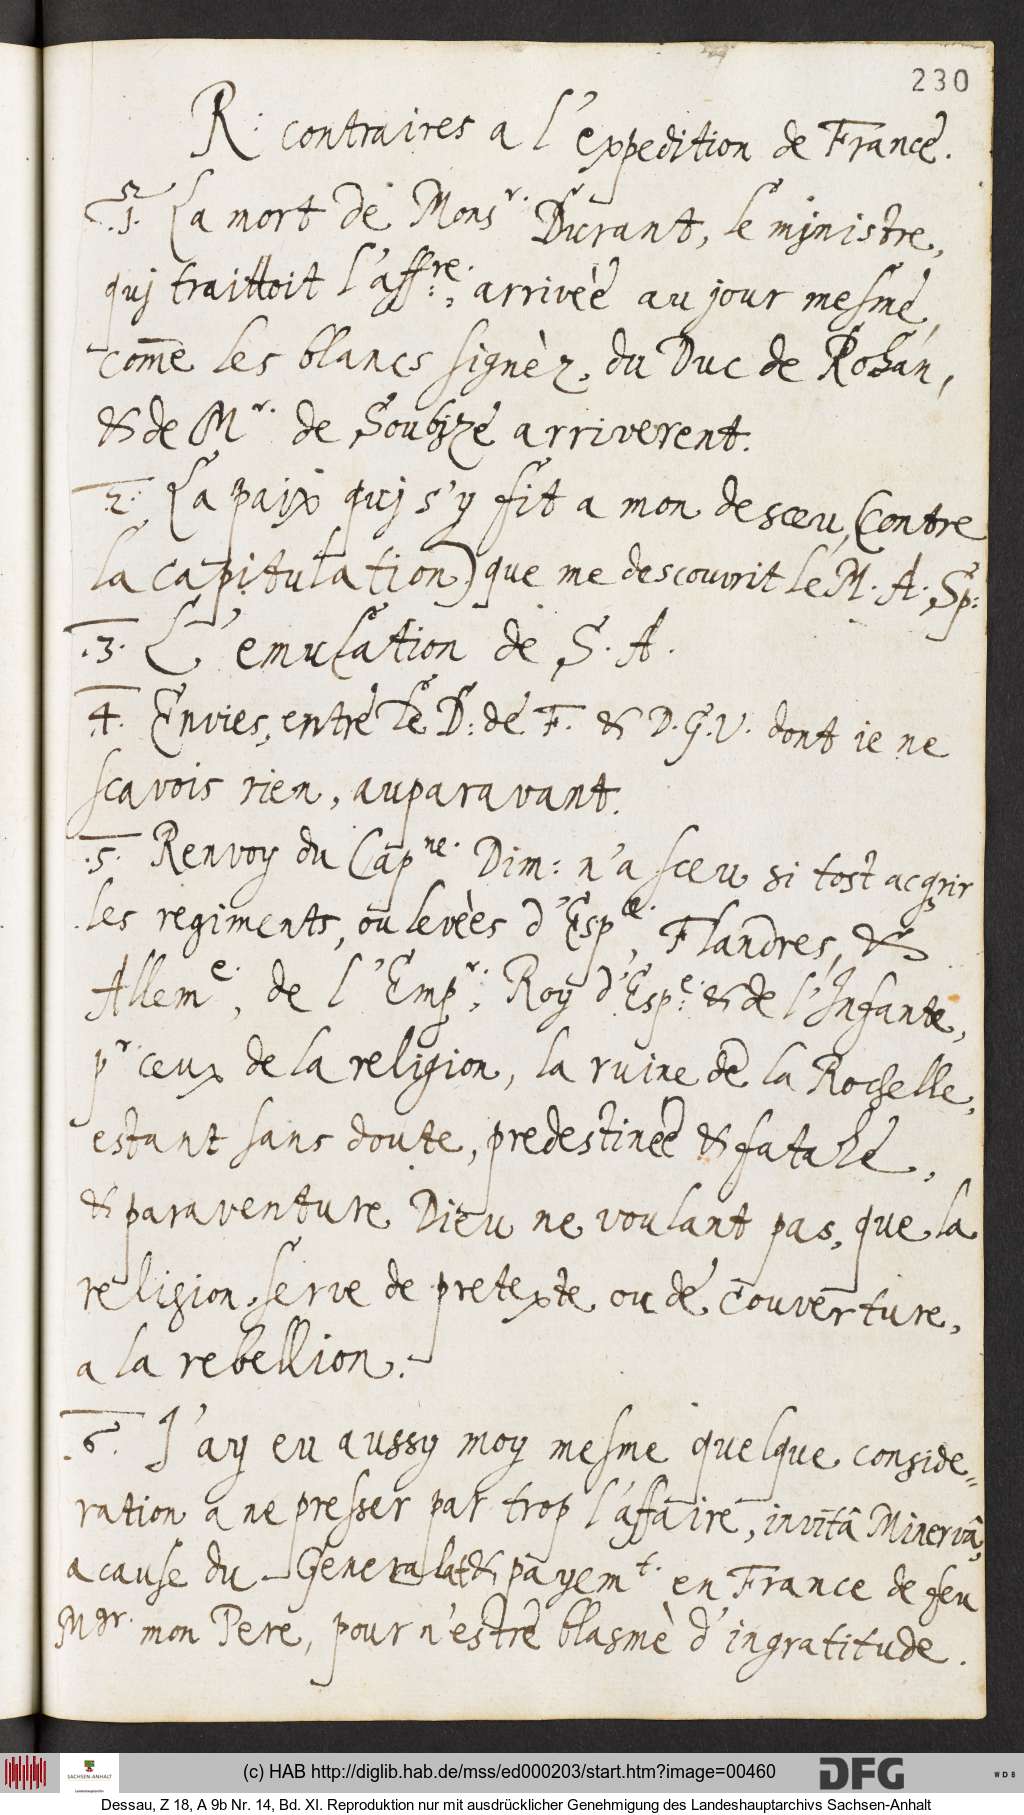 230
R: contraires a l'expedition de France.
1. La mort de Monsr. Durant, le mjnistre,
quj traittoit l'affre:, arrivèe au jour mesme,
come les blancs signèz, du Duc de Rohan,
& de Mr. de Soubjze arriverent.
2. La paix quj s'y fit a mon desceu, (contre
la capitulation) que me descouvrit le M. A. Sp:
.3. L'emulation de S. A.
4. Envies, entre le D: de F. & D. G. V. dont ie ne
scavois rien, auparavant.
.5. Renvoy du Capne. Dim: n'a sceu si tost acqrir
les regiments, ou levèes d'Espe., Flandres, &
Alleme., de l'Empr.; Roy d'Espe: & de l'Infante,
pr. ceux de la religion, la ruine de la Rochelle,
estant sans doute, predestinèe & fatale,
& paraventure Dieu ne voulant pas, que la
religion, serve de pretexte ou de couverture,
a la rebellion.
.6. J'ay eu aussy moy mesme quelque conside=
ration a ne presser par trop l'affaire, invitâ Minervâ,
a cause du Generalat & payemt. en France de feu
Mgr. mon Pere, pour n'estre blasmè d'ingratitude.
SACHSEN-ANHALT
Landeshauptarchiv
(c) HAB http://diglib.hab.de/mss/ed000203/start.htm?image=00460
DFG
WDB
Dessau, Z 18, A 9b Nr. 14, Bd. XI. Reproduktion nur mit ausdrücklicher Genehmigung des Landeshauptarchivs Sachsen-Anhalt